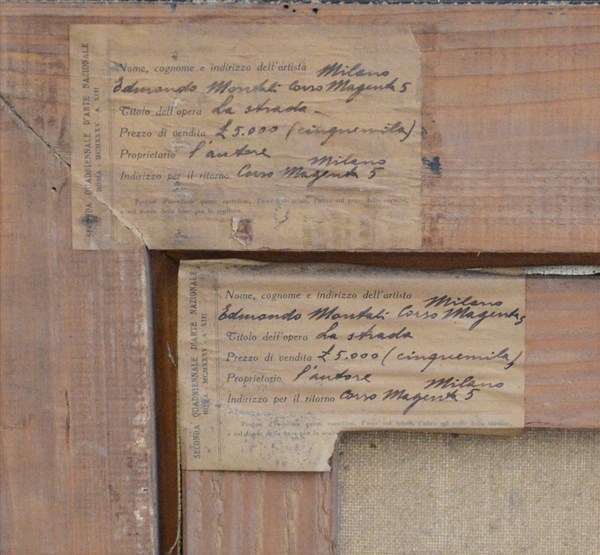 SECONDA QUADRIENNALE D'ARTE NAZIONALE
ROMA - MCMXXXV - A. XIII
Nome, cognome e indirizzo dell'artista Milano
Edmondo Montali Corso Magenta 5
Titolo dell'opera La strada
Prezzo di vendita £ 5.000 (cinquemila)
Proprietario l'autore Milano
Indirizzo per il ritorno Corso Magenta 5
SECONDA QUADRIENNALE D'ARTE NAZIONALE
ROMA - MCMXXXV - A. XIII
Nome, cognome e indirizzo dell'artista Milano
Edmondo Montali Corso Magenta 5
Titolo dell'opera La strada
Prezzo di vendita £ 5.000 (cinquemila)
Proprietario l'autore Milano
Indirizzo per il ritorno Corso Magenta 5